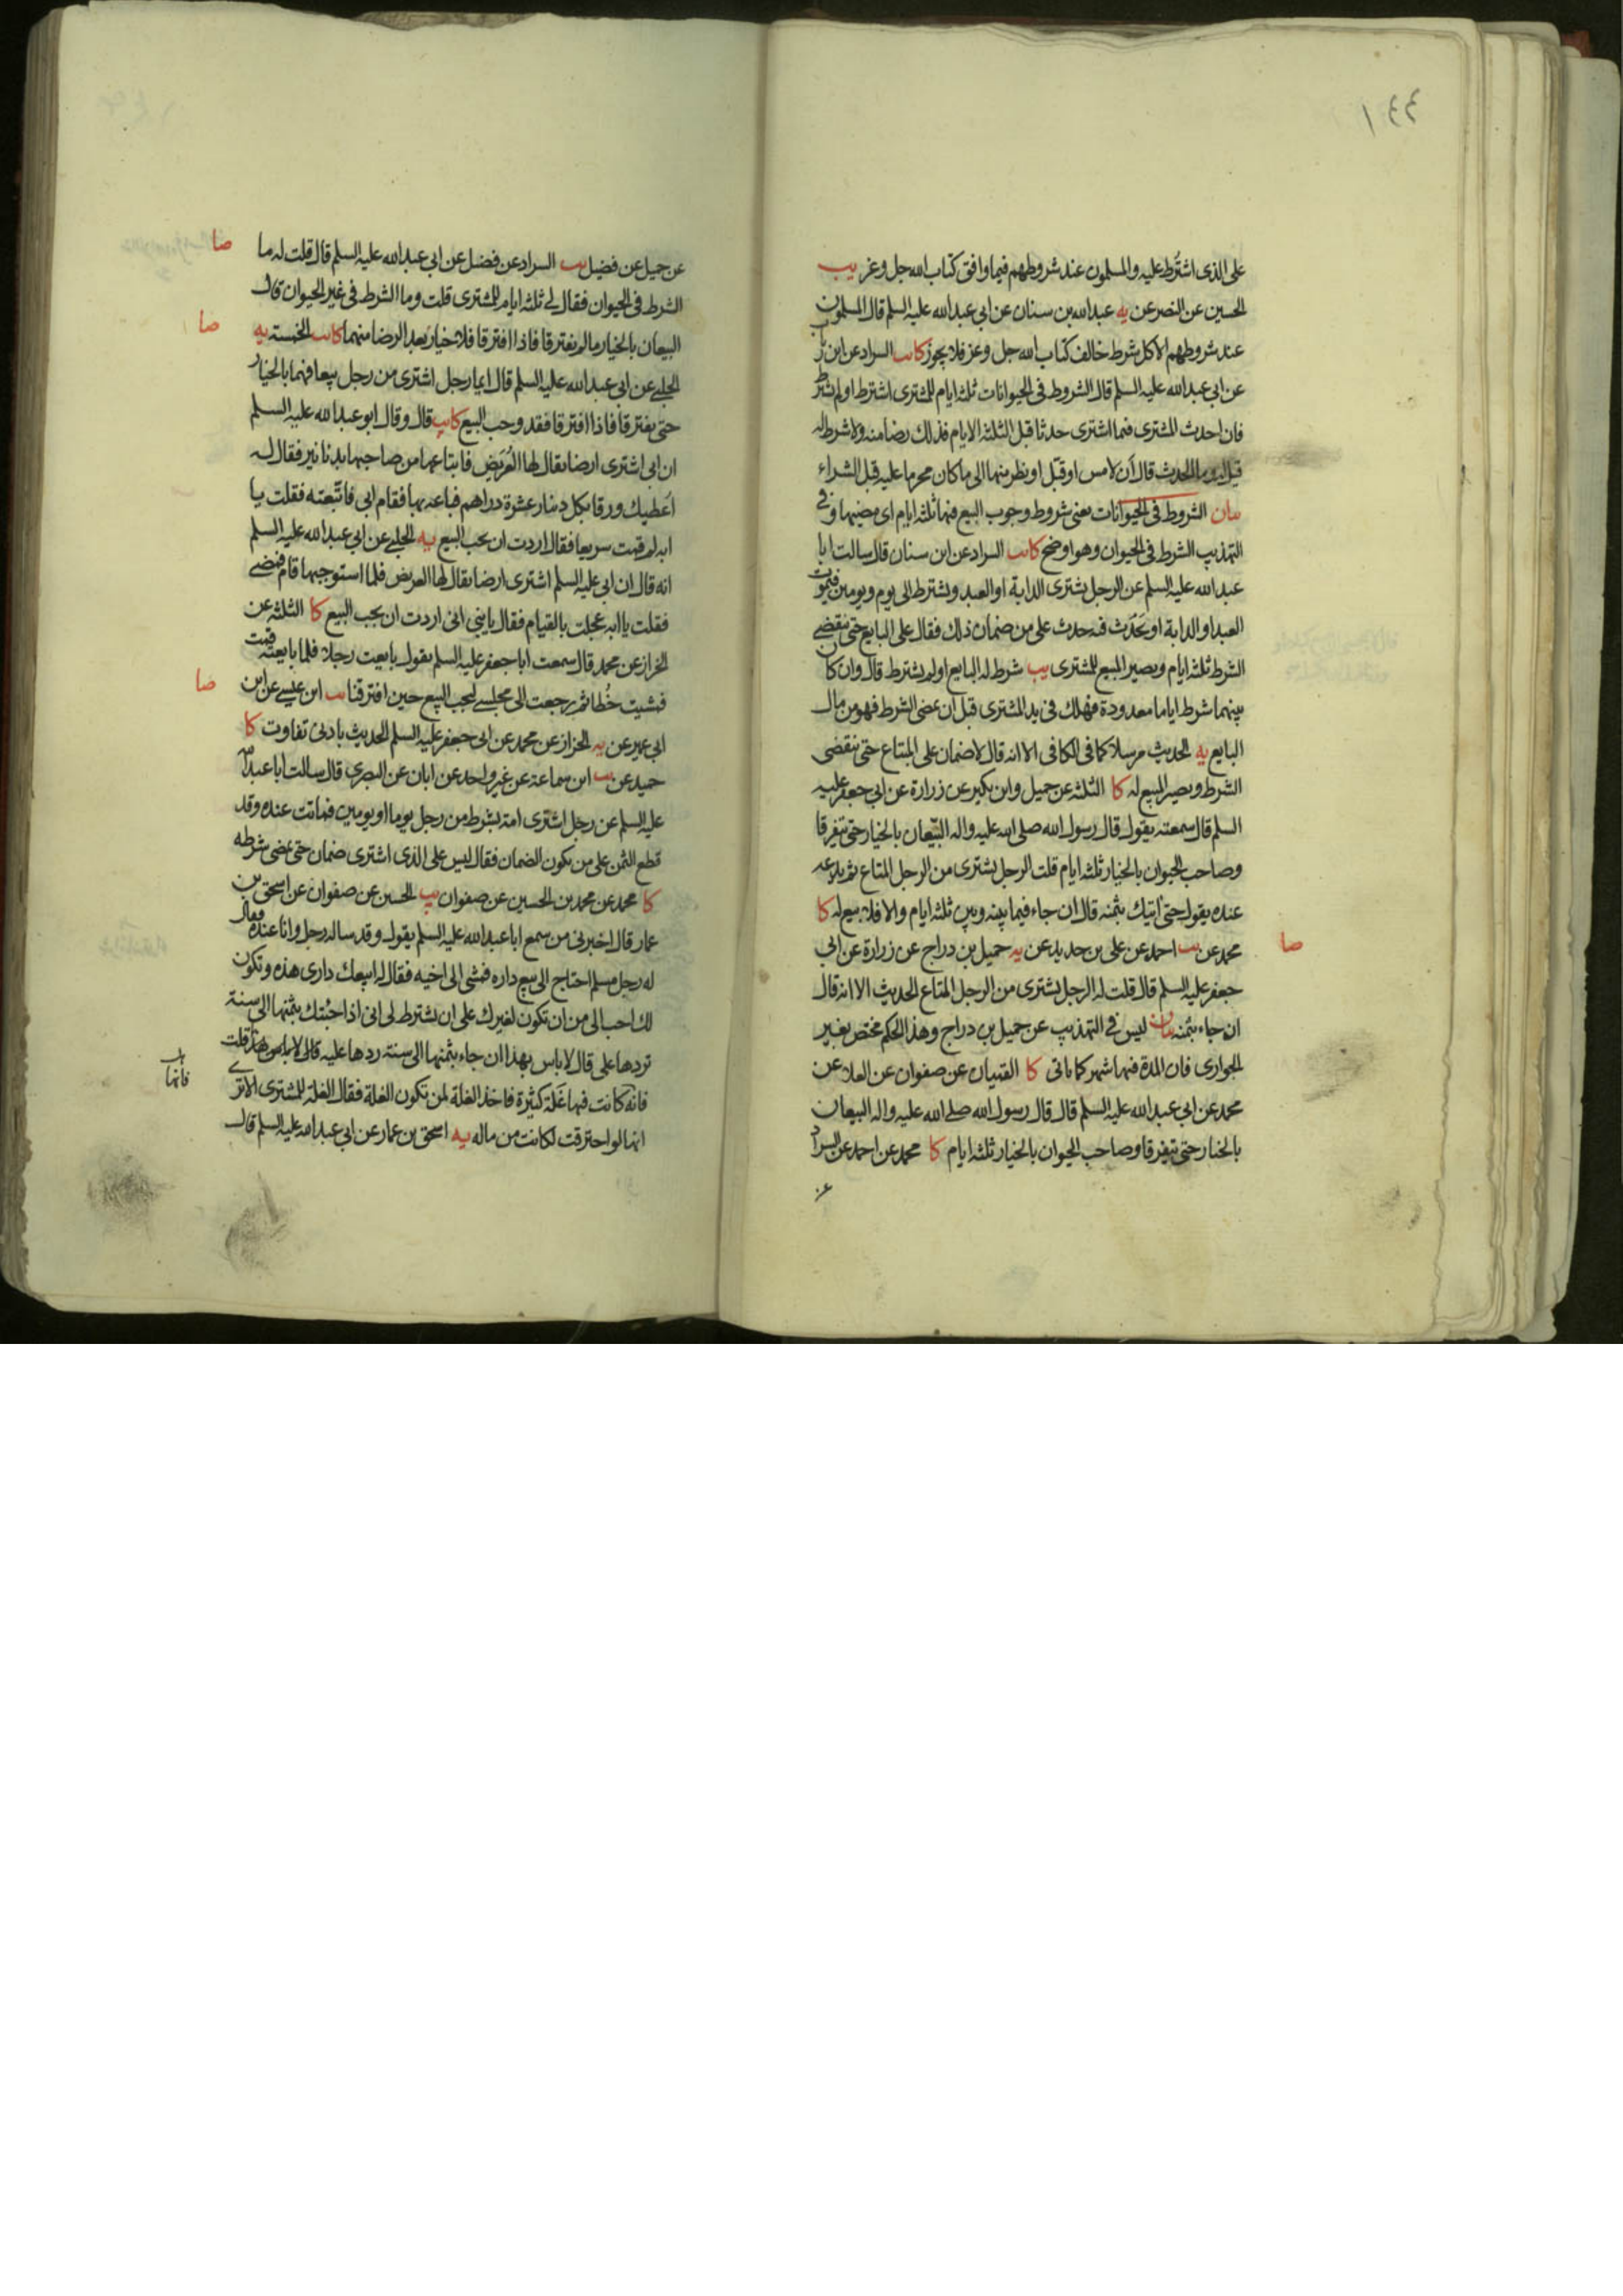 ١٤٤
على الذى اشترط عليه والمسلمون عند شروطهم فيما وافق كتاب الله جل وعز يب
الحسين عن النضر عن يه عبدالله بن سنان عن ابي عبدالله عليه السلم قال المسلمون
عند شروطهم الا كل شرط خالف كتاب الله جل وعز فلا يجوز كا يب السراد عن ابن رئاب
عن ابي عبدالله عليه السلم قال الشروط في الحيوانات ثلثة ايام للمشترى اشترط او لم يشترط
فان احدث المشترى فيما اشترى حدثا قبل الثلثة الايام فذلك رضا منه ولا شرط له
قيل له وما الحدث قال أن لامس او قبّل او نظر منها الى ما كان محرما عليه قبل الشراء
بيان الشروط في الحيوانات يعني شروط وجوب البيع فيها ثلثة ايام اى مضيها وفي
التهذيب الشرط في الحيوان وهو اوضح كا يب السراد عن ابن سنان قال سالت ابا
عبدالله عليه السلم عن الرجل يشترى الدابة او العبد ويشترط الى يوم ويومين فيموت
العبد او الدابة او يحدث فيه حدث على من ضمان ذلك فقال على البايع حتى ينقضي
الشرط ثلثة ايام ويصير المبيع للمشترى يب شرط له البايع او لم يشترط قال وان كان
بينهما شرط اياما معدودة فهلك في يد المشترى قبل ان يمضى الشرط فهو من مال
البايع يه الحديث مرسلا كما في الكافي الا انه قال لا ضمان على المبتاع حتى ينقضى
الشرط ويصير المبيع له كا الثلثة عن جميل وابن بكير عن زرارة عن ابي جعفر عليه
السلم قال سمعته يقول قال رسول الله صلى الله عليه واله البيّعان بالخيار حتى يتفرقا
وصاحب الحيوان بالخيار ثلثة ايام قلت الرجل يشترى من الرجل المتاع ثم يدعه
عنده يقول حتى آتيك بثمنه قال ان جاء فيما بينه وبين ثلثة ايام والا فلا بيع له كا
صا
محمد عن يب احمد عن على بن حديد عن يه جميل بن دراج عن زرارة عن ابي
جعفر عليه السلم قال قلت له الرجل يشترى من الرجل المتاع الحديث الا انه قال
ان جاء بثمنه بيان ليس في التهذيب عن جميل بن دراج وهذا الحكم مختص بغير
الجوارى فان المدة فيها شهر كما ياتى كا القميان عن صفوان عن العلاء عن
محمد عن ابي عبدالله عليه السلم قال قال رسول الله صلى الله عليه واله البيعان
بالخيار حتى يتفرقا وصاحب الحيوان بالخيار ثلثة ايام كا محمد عن احمد عن السراد
عن
صا
عن جميل عن فضيل يب السراد عن فضيل عن ابي عبدالله عليه السلم قال قلت له ما
الشرط في الحيوان فقال لي ثلثة ايام للمشترى قلت وما الشرط في غير الحيوان قال
صا
البيعان بالخيار ما لم يفترقا فاذا افترقا فلا خيار بعد الرضا منهما كا يب الخمسة يه
الحلبي عن ابي عبدالله عليه السلم قال ايما رجل اشترى من رجل بيعا فهما بالخيار
حتى يفترقا فاذا افترقا فقد وجب البيع كا يب قال وقال ابو عبدالله عليه السلم
ان ابي اشترى ارضا يقال لها العريض فابتاعها من صاحبها بدنانير فقال له
اعطيك ورقا بكل دينار عشرة دراهم فباعه بها فقام ابي فاتبعته فقلت يا
ابه لم قمت سريعا فقال اردت ان يجب البيع يه الحلبي عن ابي عبدالله عليه السلم
انه قال ان ابي عليه السلم اشترى ارضا يقال لها العريض فلما استوجبها قام فمضى
فقلت يا ابه عجلت بالقيام فقال يا بني اني اردت ان يجب البيع كا الثلثة عن
الخراز عن محمد قال سمعت ابا جعفر عليه السلم يقول بايعت رجلا فلما بايعته قمت
صا
فمشيت خُطا ثم رجعت الى مجلسى ليجب البيع حين افترقنا يب ابن عيسى عن ابن
ابي عمير عن يه الخراز عن محمد عن ابي جعفر عليه السلم الحديث بادنى تفاوت كا
حميد عن يب ابن سماعة عن غير واحد عن ابان عن البصرى قال سالت ابا عبدالله
عليه السلم عن رجل اشترى امة بشرط من رجل يوما او يومين فماتت عنده وقد
قطع الثمن على من يكون الضمان فقال ليس على الذى اشترى ضمان حتى يمضى شرطه
كا محمد عن محمد بن الحسين عن صفوان يب الحسين عن صفوان عن اسحق بن
عمار قال اخبرنى من سمع ابا عبدالله عليه السلم يقول وقد ساله رجل وانا عنده فقال
له رجل مسلم احتاج الى بيع داره فمشى الى اخيه فقال له ابيعك دارى هذه وتكون
لك احب الى من ان تكون لغيرك على ان تشترط لى انى اذا جئتك بثمنها الى سنة
تردها على قال لا باس بهذا ان جاء بثمنها الى سنة ردها عليه قلت
فانها
فانه كانت فيها غلة كثيرة فاخذ الغلة لمن تكون الغلة فقال الغلة للمشترى الا ترى
انها لو احترقت لكانت من ماله يه اسحق بن عمار عن ابي عبدالله عليه السلم قال